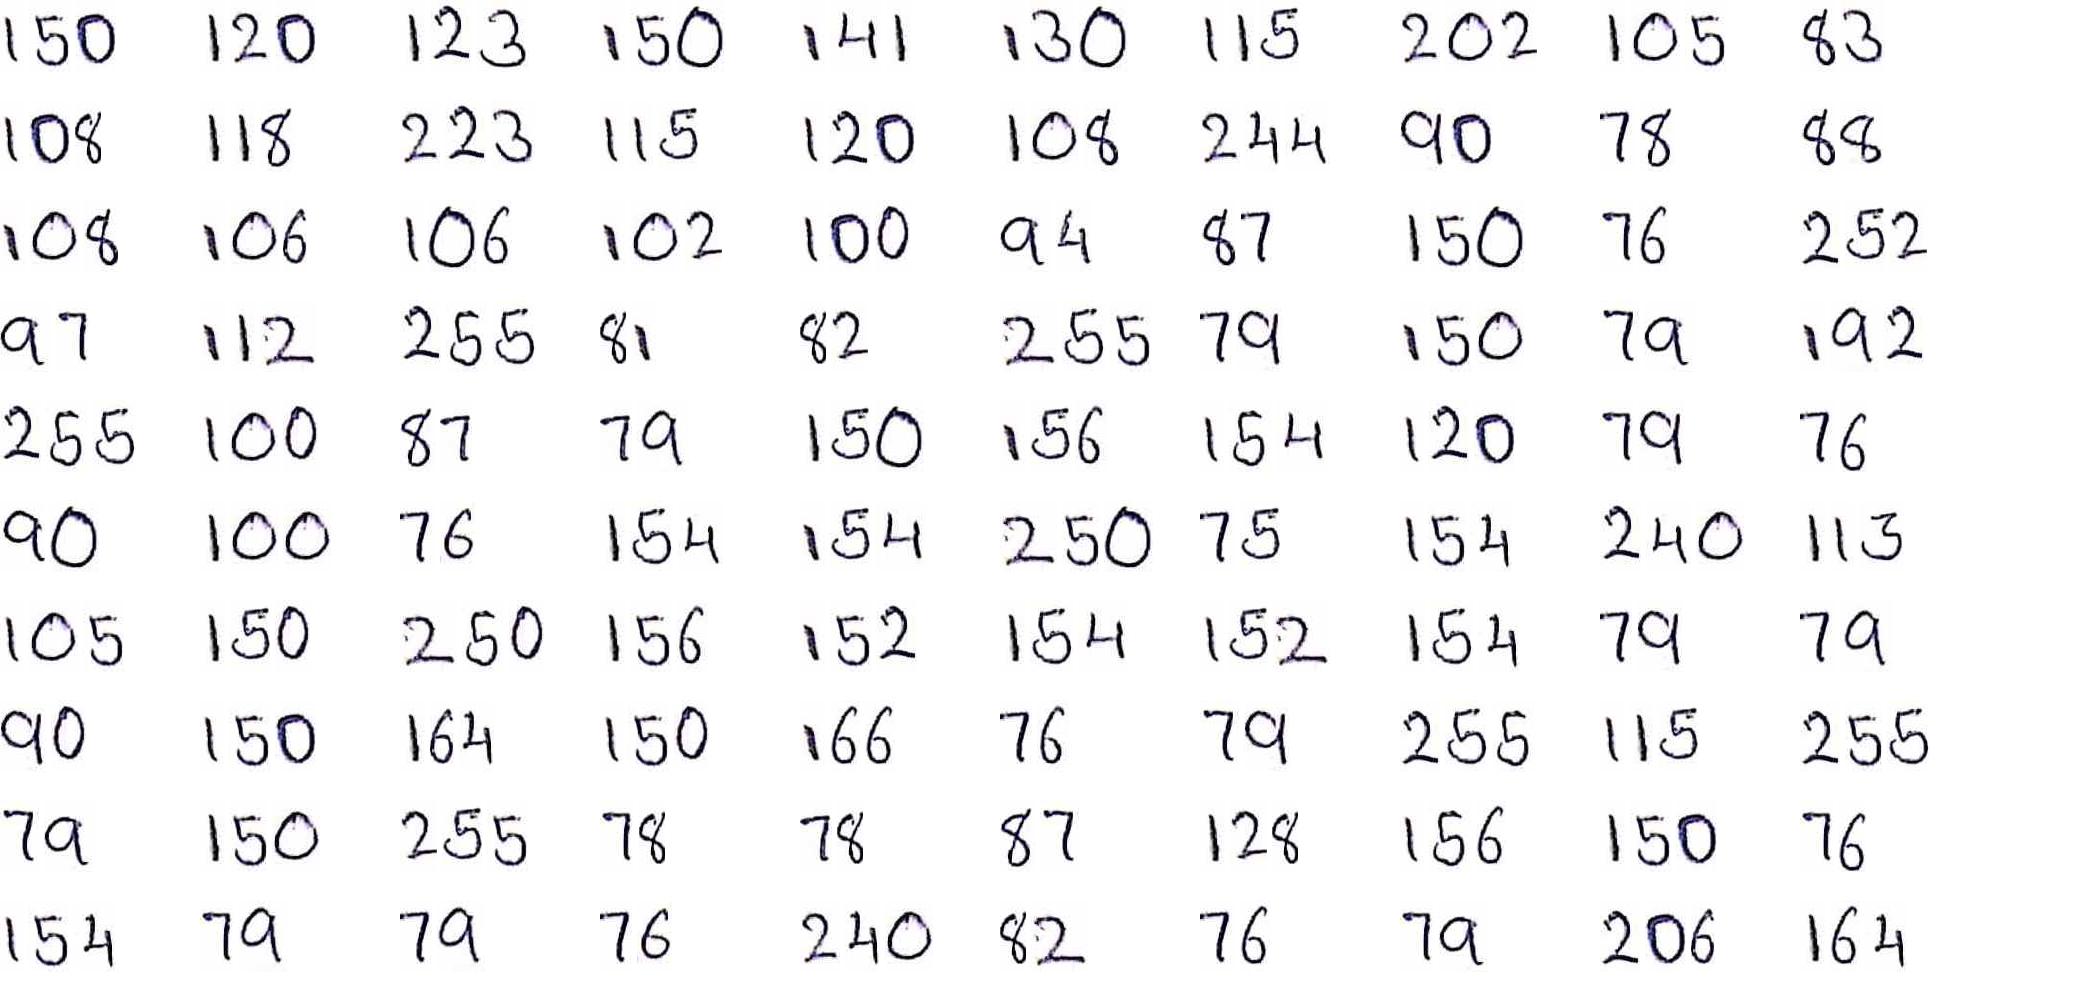 150 120 123 150 141 130 115 202 105 83
108 118 223 115 120 108 244 90 78 88
108 106 106 102 100 94 87 150 76 252
97 112 255 81 82 255 79 150 79 192
255 100 87 79 150 156 154 120 79 76
90 100 76 154 154 250 75 154 240 113
105 150 250 156 152 154 152 154 79 79
90 150 164 150 166 76 79 255 115 255
79 150 255 78 78 87 128 156 150 76
154 79 79 76 240 82 76 79 206 164